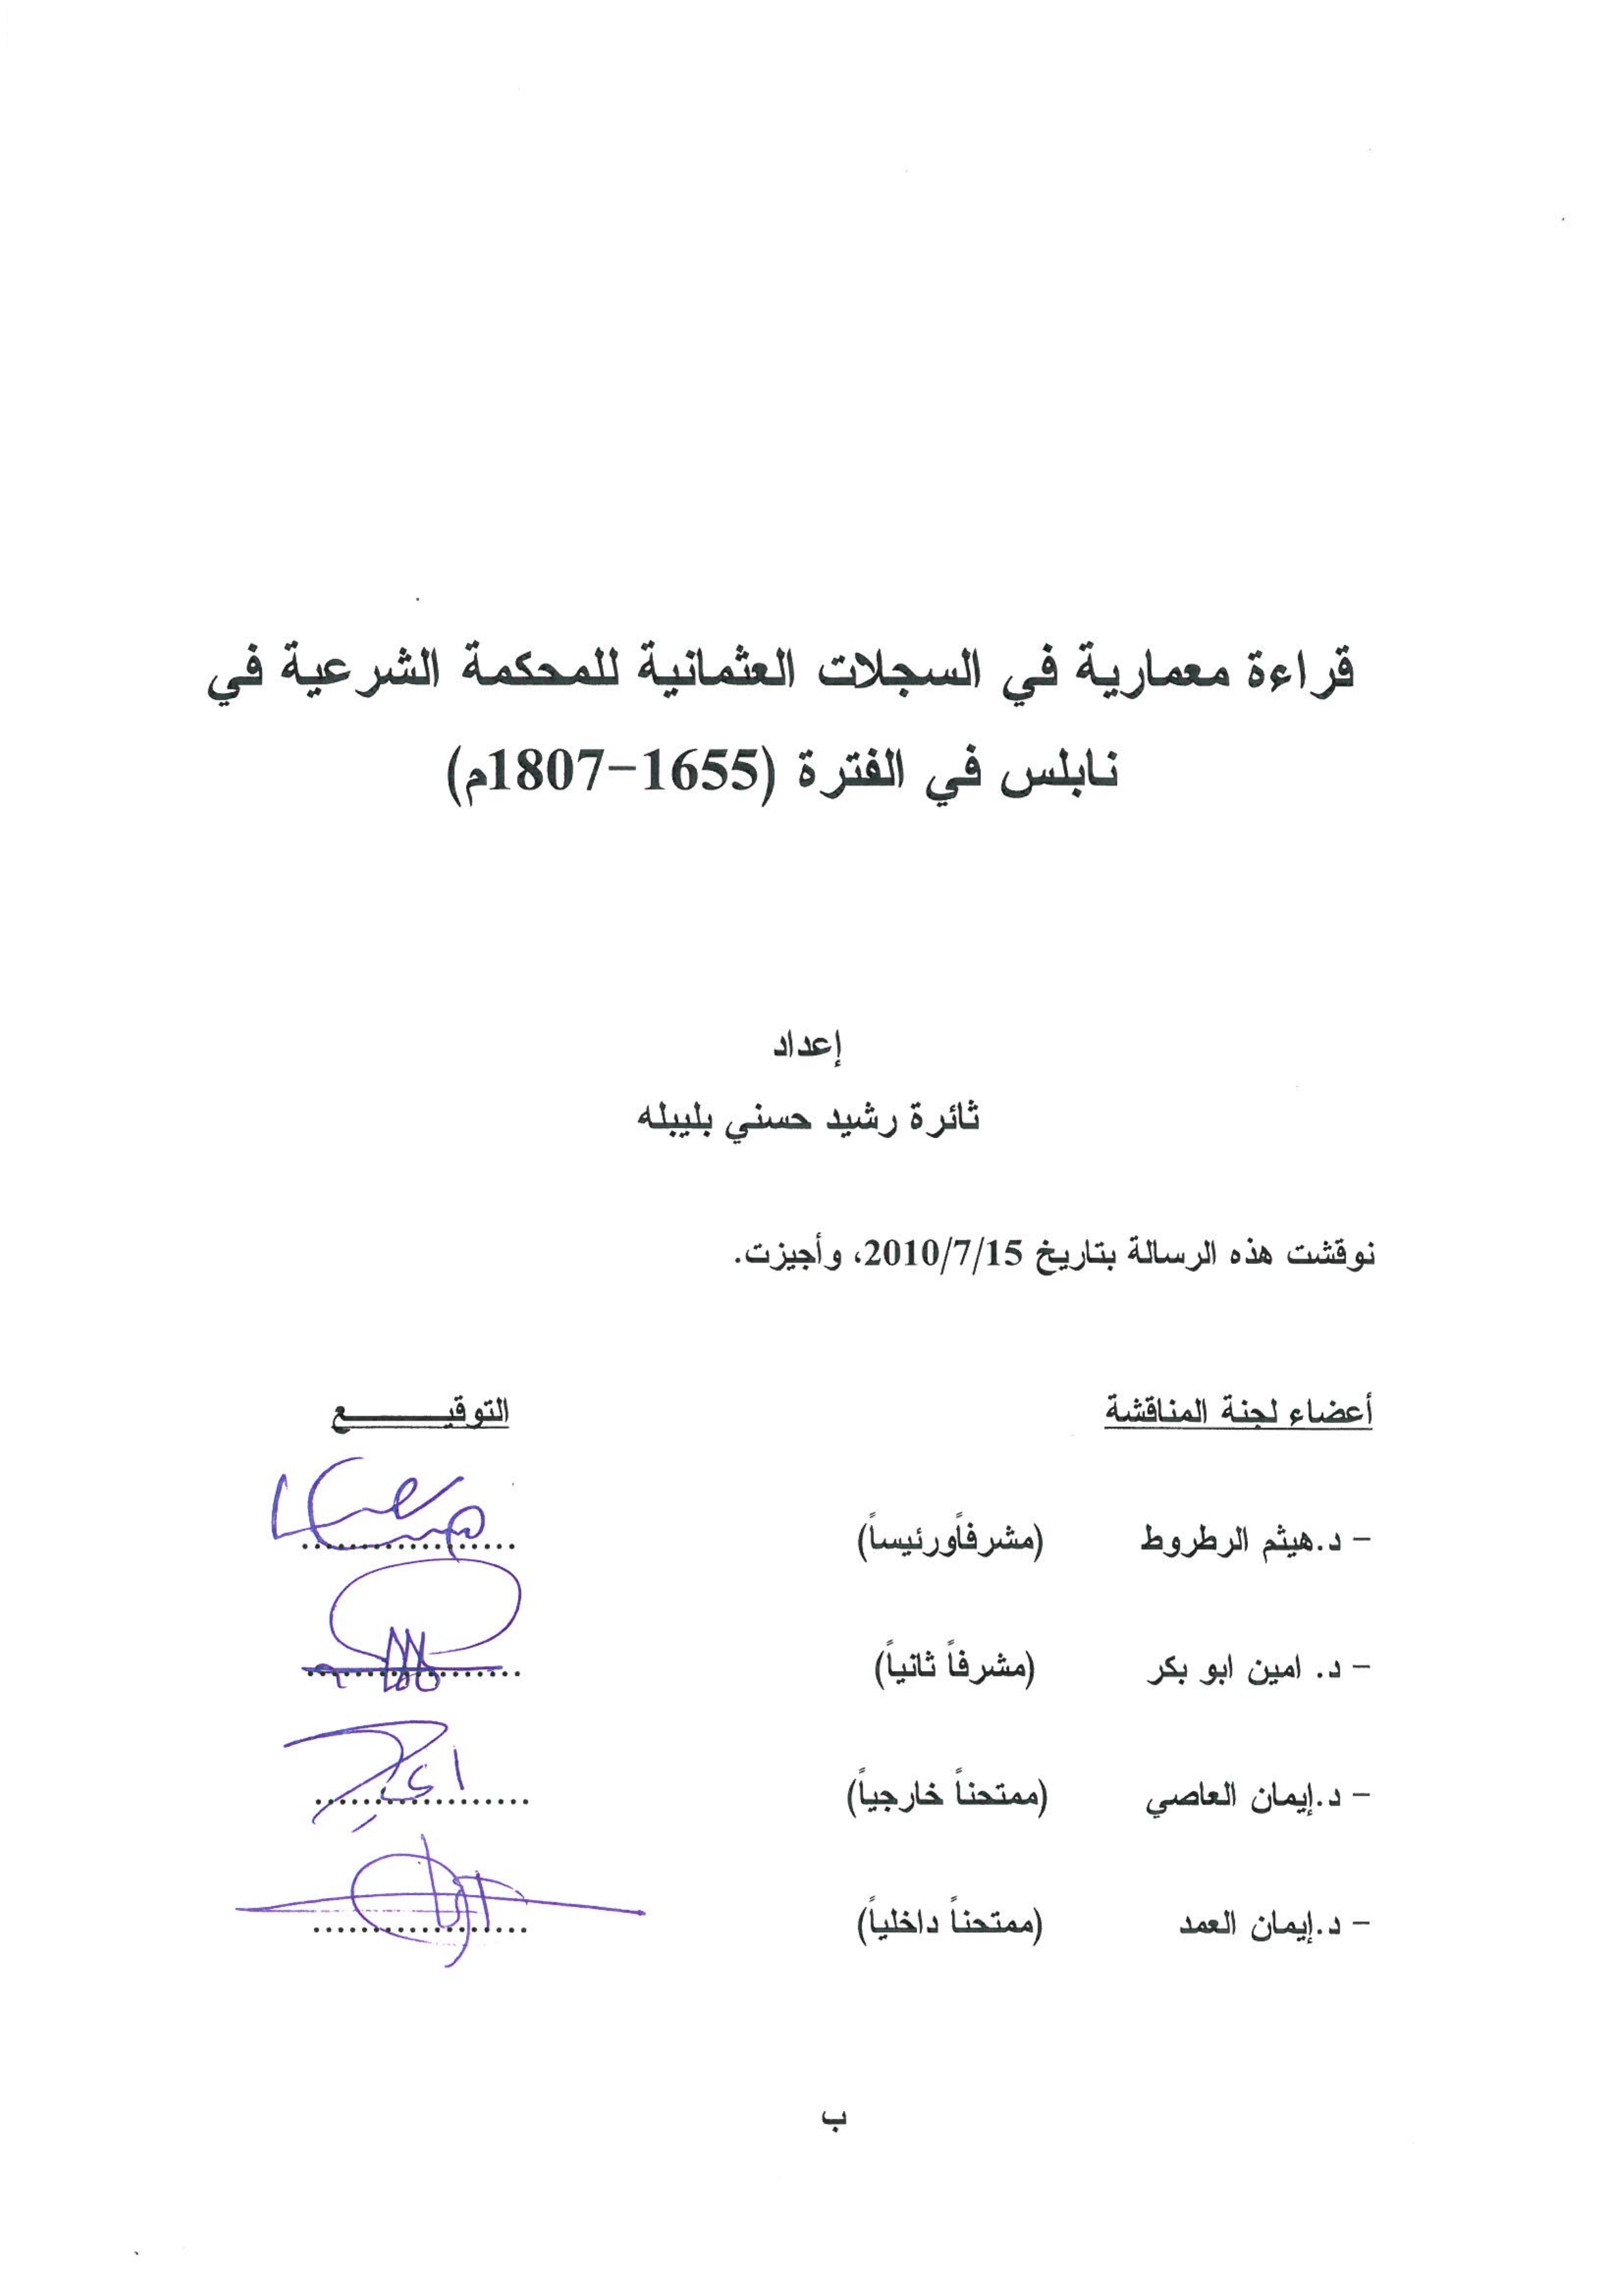 قراءة معمارية في السجلات العثمانية للمحكمة الشرعية في
نابلس في الفترة (1655-1807م)
إعداد
ثائرة رشيد حسني بليبله
نوقشت هذه الرسالة بتاريخ 2010/7/15، وأجيزت.
أعضاء لجنة المناقشة التوقيـــــــــع
- د.هيثم الرطروط (مشرفاًورئيساً) ..................
- د. امين ابو بكر (مشرفاً ثانياً) ..................
- د.إيمان العاصي (ممتحناً خارجياً) ..................
- د.إيمان العمد (ممتحناً داخلياً) ..................
ب